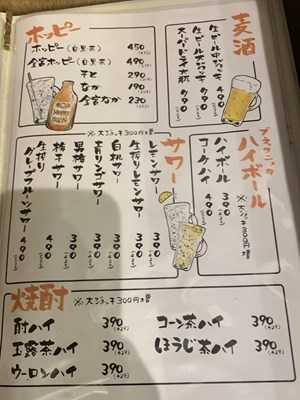 ホッピー
ホッピー(白黒茶) 450
金宮ホッピー(白黒茶) 490
そと 290
なか 190
金宮なか 230
麦酒
生ビール中ジョッキ 490
生ビール大ジョッキ 890
スーパードライ大瓶 690
サワー
※大ジョッキ300円増
レモンサワー 390
生搾りレモンサワー 490
白桃サワー 390
青りんごサワー 390
黒糖サワー 390
梅干サワー 490
生搾り
グレープフルーツサワー 490
ブラックニッカ
ハイボール
※大ジョッキ300円増
ハイボール 390
コークハイ 490
焼酎 ※大ジョッキ300円増
酎ハイ 390
玉露茶ハイ 390
ウーロンハイ 390
コーン茶ハイ 390
ほうじ茶ハイ 390